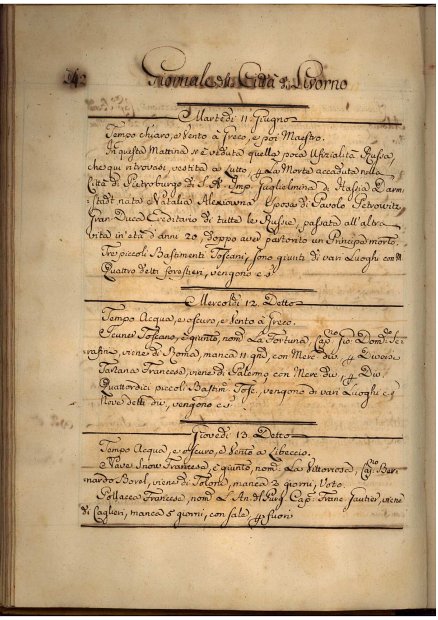 Giornale della Città di Livorno
Martedi 11 Giugno
Tempo chiaro, e Vento à Greco, e poi Maestro.
In questa Mattina si è veduta quella poca Ufizialità Russa,
che qui ritrovasi, vestita a Lutto, p La Morte accaduta nella
Città di Pietroburgo di S. A. Imp. Guglielmina di Hassia Darm:
:stadt nata Natalia Alexiowna Sposa di Pavolo Petrowitz
Gran Duca Ereditario di tutte le Russie, passata all'altra
vita in età d'anni 20, doppo aver partorito un Principe morto.
Tre piccoli Bastimenti Toscani, sono giunti di vari Luoghi con M.
Quattro detti forestieri, vengono e s.
Mercoldi 12 Detto
Tempo Acqua, e oscuro, e Vento à Greco.
Toscano, è giunto, nom. La Fortuna, Cap.no Gio: Dom.co Se:
rafini, viene di Roma, manca 11 gni, con Merc. div. p Diversi
Tartana Francese, viene di Palermo con Merc. div. p Div.
Quattordici piccoli Bastim. Tosc., vengono di vari Luoghi e s.
Nove detti div., vengono e s.
Giovedi 13 Detto
Tempo Acqua, e oscuro, e Vento a Libeccio.
Nave Snow Francese, è giunto, nom. La Vittoriosa, Cap.no Ber:
nardo Borel, viene di Tolone, manca 2 giorni, Voto.
Pollacca Francese, nom. L'An. del Purg. Cap. Franc. Gautier, viene
di Caglieri, manca 5 giorni, con Sale, p fuori